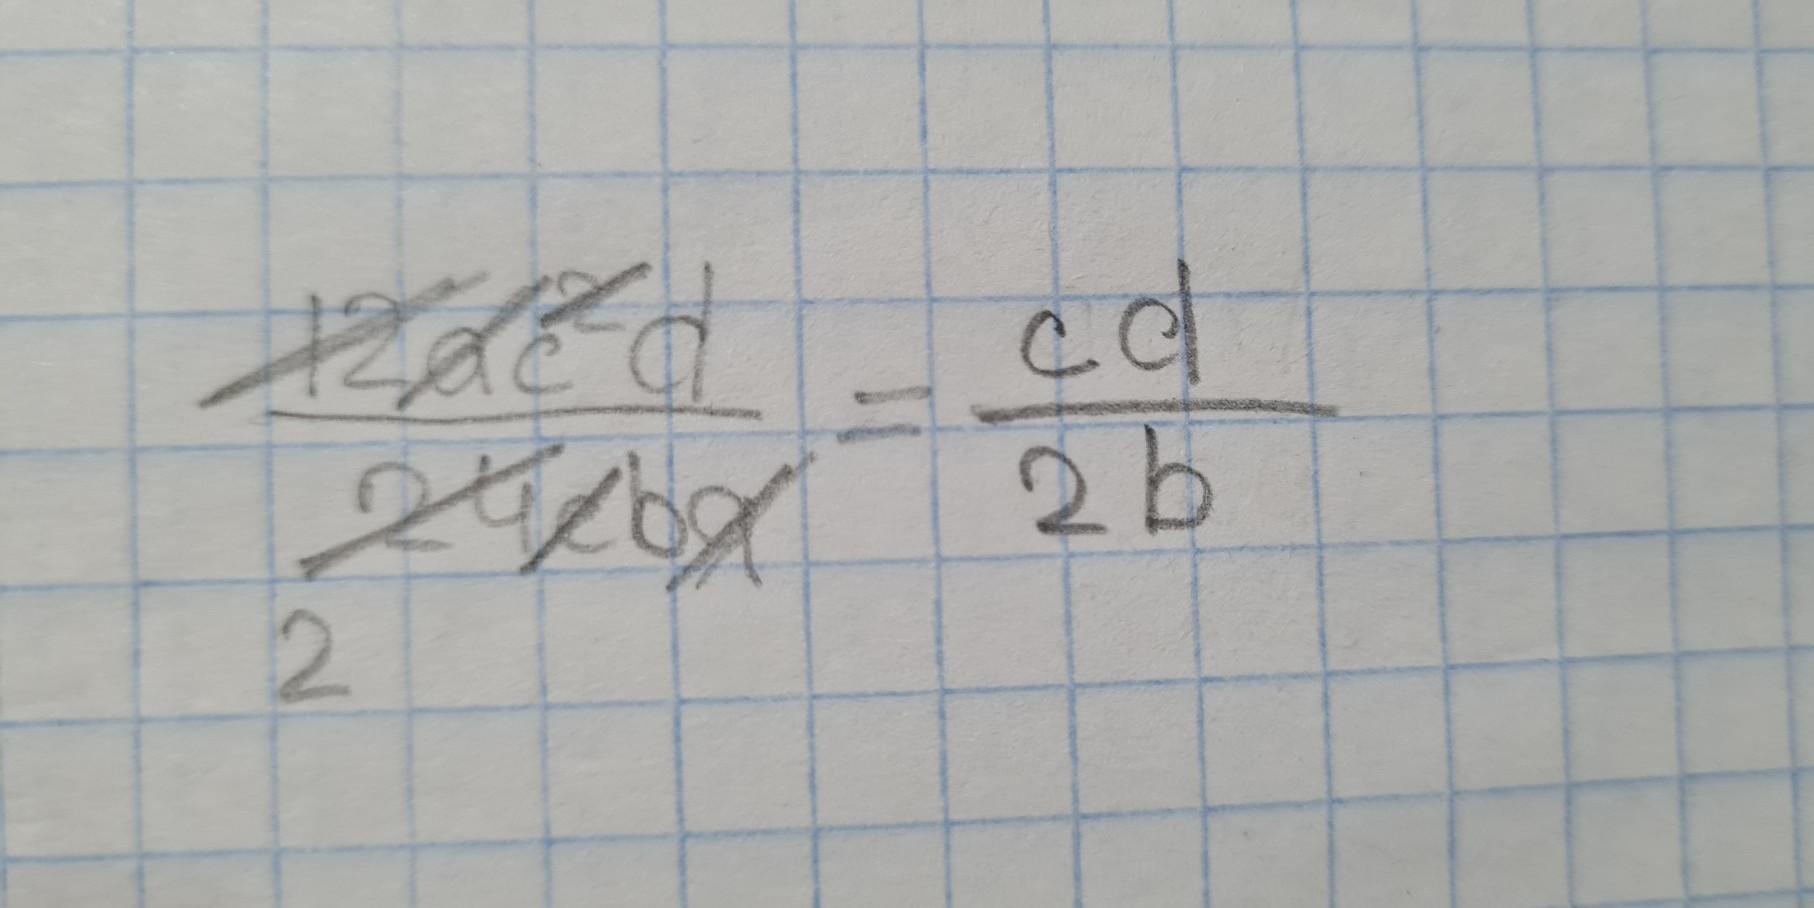 12ac²d / 24cba = cd / 2b
2